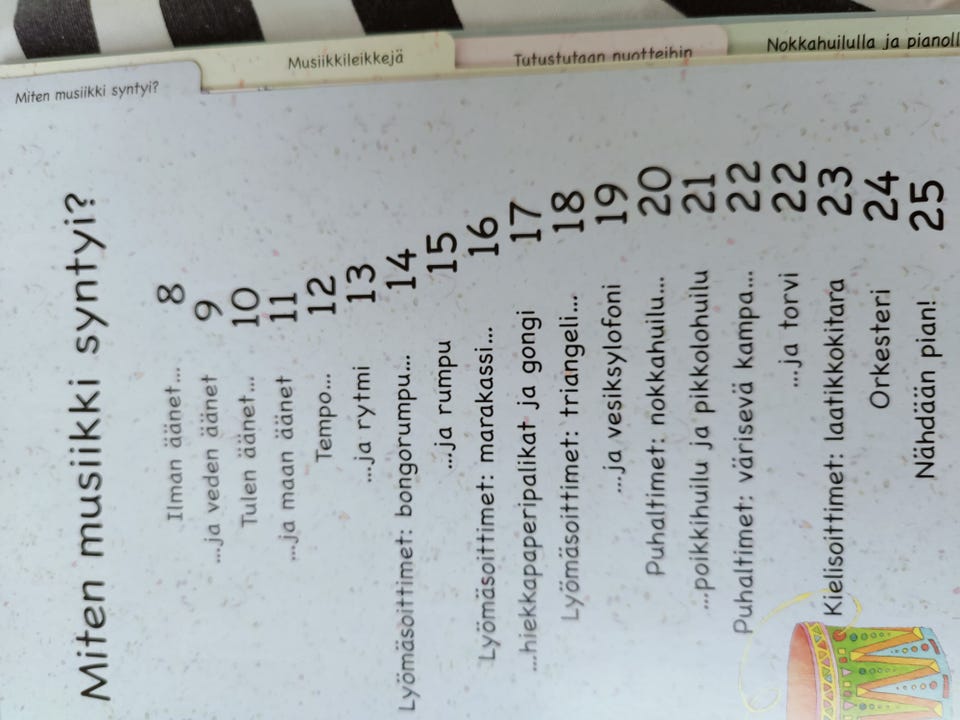 Miten musiikki syntyi?
Musiikkileikkejä
Tutustutaan nuotteihin
Nokkahuilulla ja pianoll
Miten musiikki syntyi?
Ilman äänet... 8
...ja veden äänet 9
Tulen äänet... 10
...ja maan äänet 11
Tempo... 12
...ja rytmi 13
Lyömäsoittimet: bongorumpu... 14
...ja rumpu 15
Lyömäsoittimet: marakassi... 16
...hiekkapaperipalikat ja gongi 17
Lyömäsoittimet: triangeli... 18
...ja vesiksylofoni 19
Puhaltimet: nokkahuilu... 20
...poikkihuilu ja pikkolohuilu 21
Puhaltimet: värisevä kampa... 22
...ja torvi 22
Kielisoittimet: laatikkokitara 23
Orkesteri 24
Nähdään pian! 25